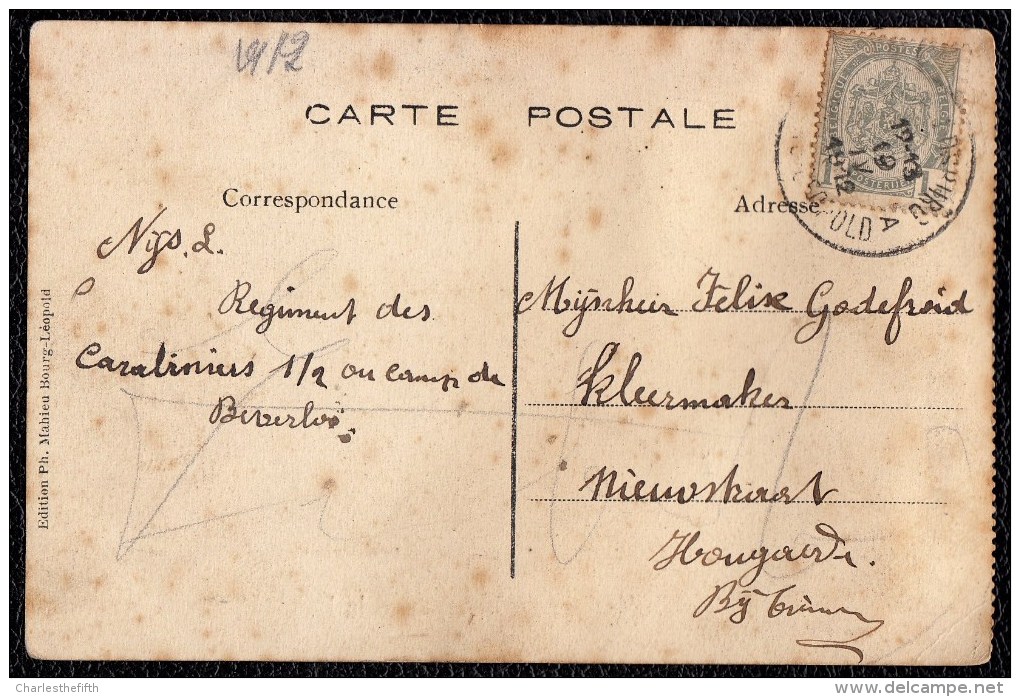 1912
CARTE POSTALE
POSTES
12-13
19 V
1912
1 1
A
Correspondance
Adresse
Nijs. L.
Regiment des
Carabiniers 1/2 au camp de
Beverloo.
Mijnheer Felix Godefroid
Kleermaker
Nieuwstraat
Hougaerde.
Bij
Edition Ph. Mahieu Bourg-Léopold
Charlesthefifth
delcampe.net